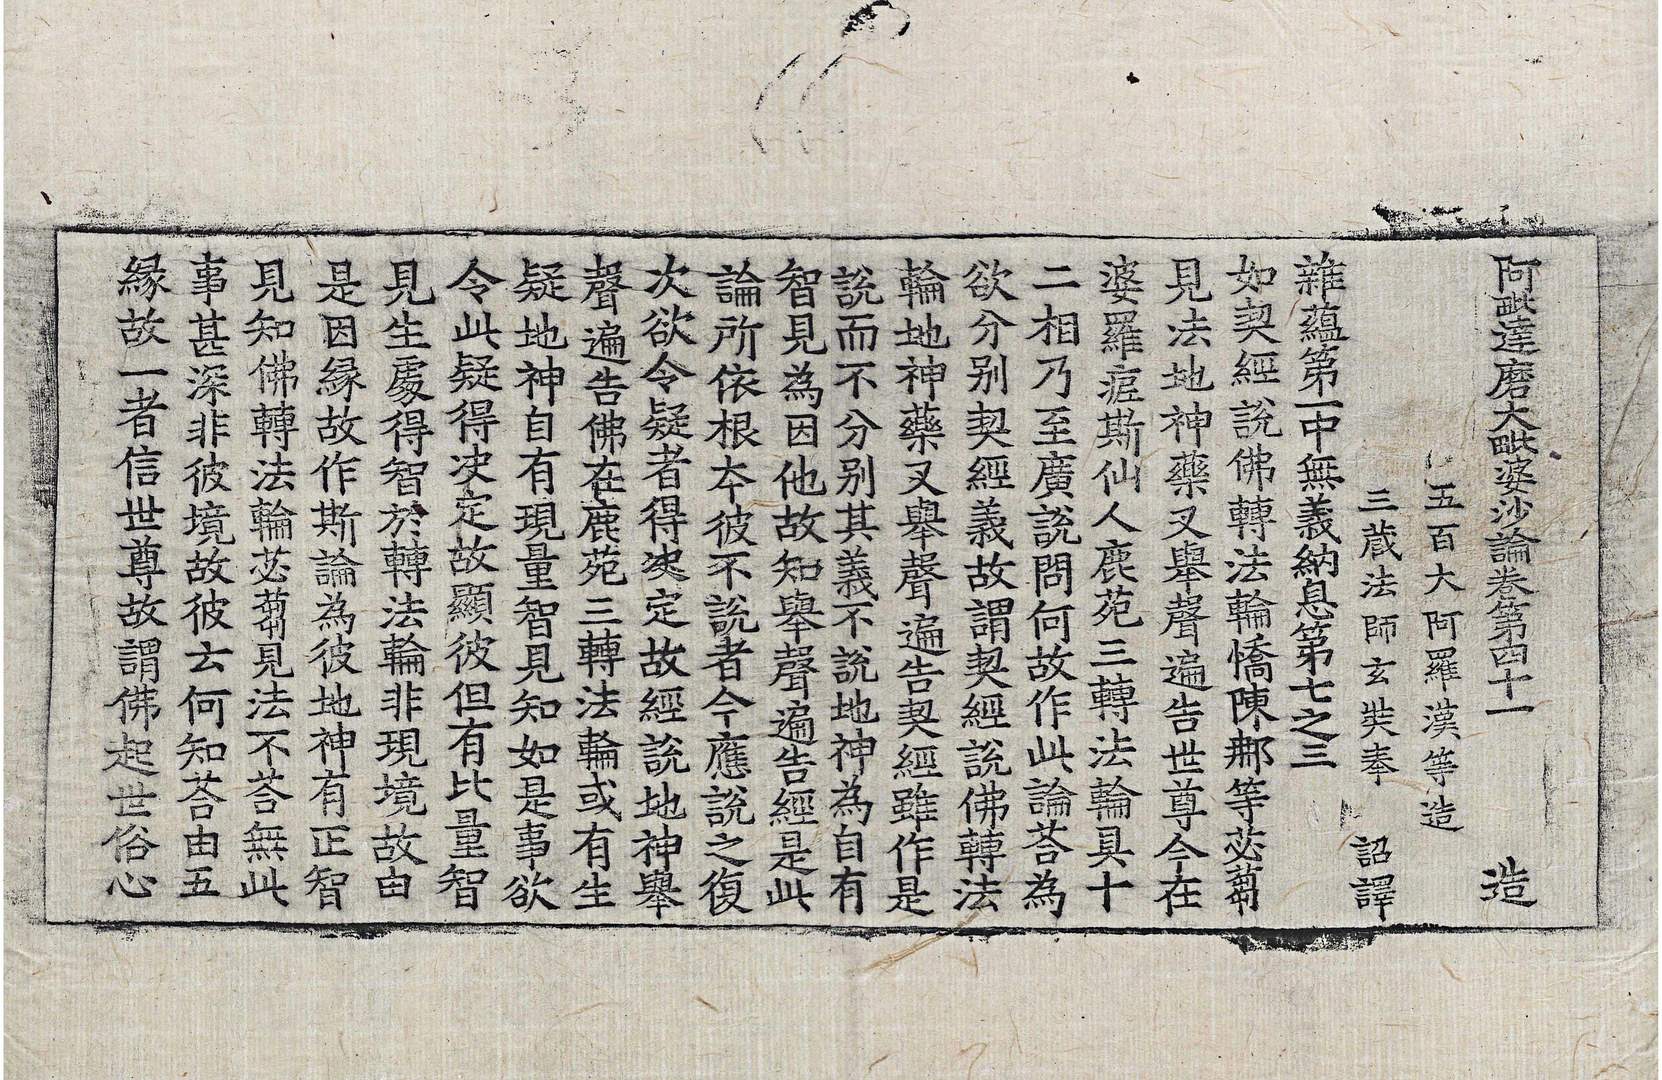 阿毗達磨大毗婆沙論卷第四十一 造
五百大阿羅漢等造
三蔵法師玄奘奉 詔譯
雜蘊第一中無義納息第七之三
如契經說佛轉法輪憍陳那等苾蒭
見法地神藥叉舉聲遍告世尊今在
婆羅痆斯仙人鹿苑三轉法輪具十
二相乃至廣說問何故作此論荅為
欲分别契經義故謂契經說佛轉法
輪地神藥叉舉聲遍告契經雖作是
說而不分别其義不說地神為自有
智見為因他故知舉聲遍告經是此
論所依根本彼不說者今應說之復
次欲令疑者得決定故經說地神舉
聲遍告佛在鹿苑三轉法輪或有生
疑地神自有現量智見知如是事欲
令此疑得决定故顯彼但有比量智
見生處得智於轉法輪非現境故由
是因縁故作斯論為彼地神有正智
見知佛轉法輪苾蒭見法不荅無此
事甚深非彼境故彼云何知荅由五
縁故一者信世尊故謂佛起世俗心